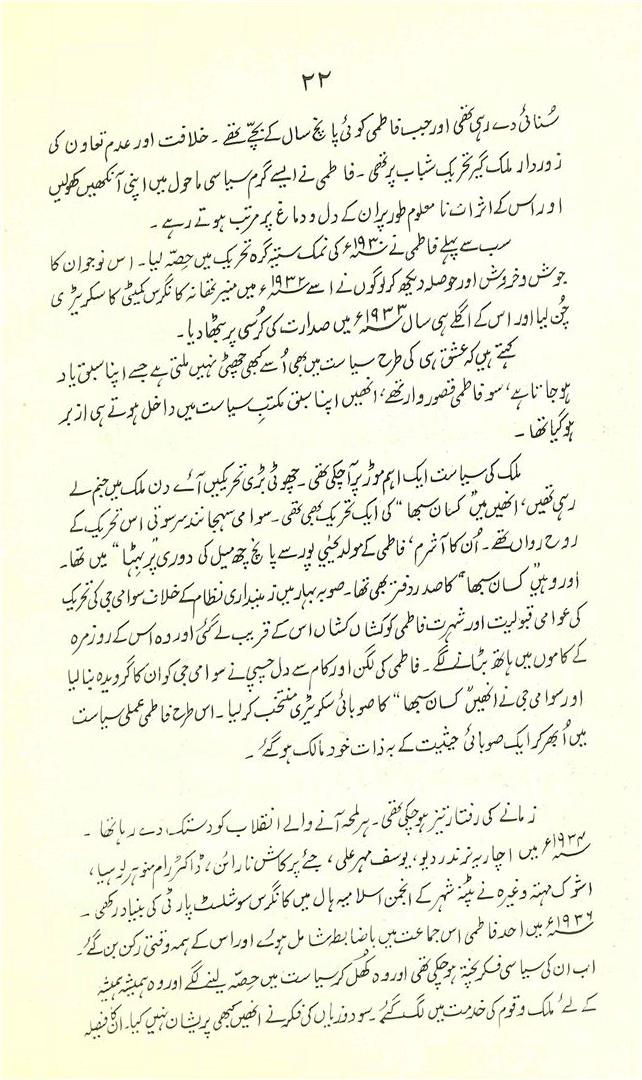 ۲۲
سُنائی دے رہی تھی اور جب فاطمی کوئی پانچ سال کے بچّے تھے ۔ خلافت اور عدم تعاون کی
زوردار ملک گیر تحریک شباب پر تھی ۔ فاطمی نے ایسے گرم سیاسی ماحول میں اپنی آنکھیں کھولیں
اور اس کے اثرات نامعلوم طور پر ان کے دل و دماغ پر مرتب ہوتے رہے ۔
سب سے پہلے فاطمی نے ۱۹۳۰ء کی نمک ستیہ گرہ تحریک میں حصّہ لیا ۔ اس نوجوان کا
جوش و خروش اور حوصلہ دیکھ کر لوگوں نے اسے ۱۹۳۲ء میں منیر تھانہ کانگرس کمیٹی کا سکریٹری
چُن لیا اور اس کے اگلے ہی سال ۱۹۳۳ء میں صدارت کی کُرسی پر بٹھا دیا ۔
کہتے ہیں کہ عشق ہی کی طرح سیاست میں بھی اُسے کبھی چھٹی نہیں ملتی ہے جسے اپنا سبق یاد
ہو جاتا ہے ، سو فاطمی قصوروار تھے ، انھیں اپنا سبق مکتبِ سیاست میں داخل ہوتے ہی ازبر
ہو گیا تھا ۔
ملک کی سیاست ایک اہم موڑ پر آ چکی تھی ۔ چھوٹی بڑی تحریکیں آئے دن ملک میں جنم لے
رہی تھیں ، انھیں میں "کسان سبھا" کی ایک تحریک بھی تھی ۔ سوامی سہجانند سرسوتی اس تحریک کے
روح رواں تھے ۔ اُن کا آشرم ، فاطمی کے مولد یحییٰ پور سے پانچ چھ میل کی دوری پر "بہٹا" میں تھا ۔
اور وہیں "کسان سبھا" کا صدر دفتر بھی تھا ۔ صوبہ بہار میں زمینداری نظام کے خلاف سوامی جی کی تحریک
کی عوامی قبولیت اور شہرت فاطمی کو کشاں کشاں اس کے قریب لے گئی اور وہ اس کے روزمرہ
کے کاموں میں ہاتھ بٹانے لگے ۔ فاطمی کی لگن اور کام سے دل چسپی نے سوامی جی کو ان کا گرویدہ بنا لیا
اور سوامی جی نے انھیں "کسان سبھا" کا صوبائی سکریٹری منتخب کر لیا ۔ اس طرح فاطمی عملی سیاست
میں اُبھر کر ایک صوبائی حیثیت کے بہ ذات خود مالک ہو گئے ۔
زمانے کی رفتار تیز ہو چکی تھی ۔ ہر لمحہ آنے والے انقلاب کو دستک دے رہا تھا ۔
۱۹۳۴ء میں اچاریہ نرندر دیو ، یوسف مہر علی ، جئے پرکاش نارائن ، ڈاکٹر رام منوہر لوہیا ،
اشوک مہتہ وغیرہ نے پٹنہ شہر کے انجمن اسلامیہ ہال میں کانگرس سوشلسٹ پارٹی کی بنیاد رکھی ۔
۱۹۳۶ء میں احد فاطمی اس جماعت میں باضابطہ شامل ہوئے اور اس کے ہمہ وقتی رکن بن گئے ۔
اب ان کی سیاسی فکر پختہ ہو چکی تھی اور وہ کُھل کر سیاست میں حصّہ لینے لگے اور وہ ہمیشہ ہمیشہ
کے لئے ملک و قوم کی خدمت میں لگ گئے ۔ سود و زیاں کی فکر نے انھیں کبھی پریشان نہیں کیا ۔ ان کا فیصلہ